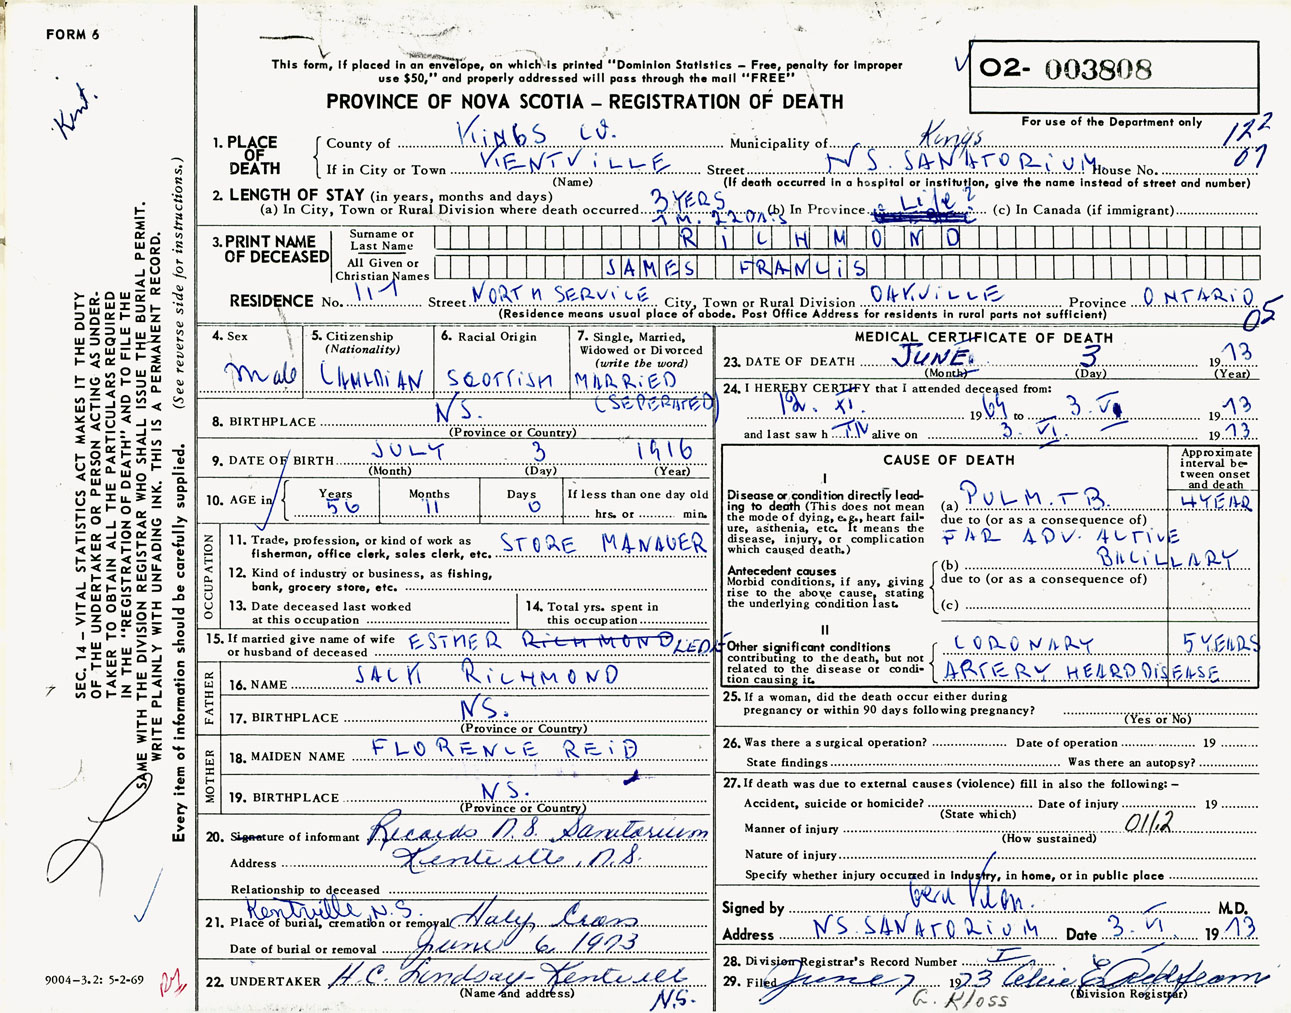 FORM 6
Kent.
This form, if placed in an envelope, on which is printed "Dominion Statistics – Free, penalty for improper
use $50," and properly addressed will pass through the mail "FREE"
O2- 003808
For use of the Department only
PROVINCE OF NOVA SCOTIA – REGISTRATION OF DEATH
122
07
1. PLACE OF DEATH
County of KINGS CO. Municipality of Kings
If in City or Town KENTVILLE Street N S. SANATORIUM House No.
(Name) (If death occurred in a hospital or institution, give the name instead of street and number)
2. LENGTH OF STAY (in years, months and days)
(a) In City, Town or Rural Division where death occurred 3 YERS 7 M. 22 DAS (b) In Province Life? (c) In Canada (if immigrant)
3. PRINT NAME OF DECEASED
Surname or Last Name RICHMOND
All Given or Christian Names JAMES FRANCIS
RESIDENCE No. 117 Street NORTH SERVICE City, Town or Rural Division OAKVILLE Province ONTARIO
05
(Residence means usual place of abode. Post Office Address for residents in rural parts not sufficient)
4. Sex Male
5. Citizenship (Nationality) CANADIAN
6. Racial Origin SCOTTISH
7. Single, Married, Widowed or Divorced (write the word) MARRIED (SEPERATED)
8. BIRTHPLACE N.S.
(Province or Country)
9. DATE OF BIRTH JULY 3 1916
(Month) (Day) (Year)
10. AGE in Years 56 Months 11 Days 0 If less than one day old hrs. or min.
OCCUPATION
11. Trade, profession, or kind of work as fisherman, office clerk, sales clerk, etc. STORE MANAGER
12. Kind of industry or business, as fishing, bank, grocery store, etc.
13. Date deceased last worked at this occupation
14. Total yrs. spent in this occupation
15. If married give name of wife or husband of deceased ESTHER RICHMOND
FATHER
16. NAME JACK RICHMOND
17. BIRTHPLACE N.S.
(Province or Country)
MOTHER
18. MAIDEN NAME FLORENCE REID
19. BIRTHPLACE N.S.
(Province or Country)
20. Signature of informant Records N.S. Sanatorium
Address Kentville, N.S.
Relationship to deceased
Kentville N.S.
21. Place of burial, cremation or removal Holy Cross
Date of burial or removal June 6 1973
22. UNDERTAKER H.C. Lindsay - Kentville
(Name and address) N.S.
MEDICAL CERTIFICATE OF DEATH
23. DATE OF DEATH JUNE 3 1973
(Month) (Day) (Year)
24. I HEREBY CERTIFY that I attended deceased from:
12. XI. 1969 to 3. VI 1973
and last saw h IM alive on 3. VI. 1973
CAUSE OF DEATH
Approximate interval between onset and death
I
Disease or condition directly leading to death (This does not mean the mode of dying, e.g., heart failure, asthenia, etc. It means the disease, injury, or complication which caused death.)
(a) PULM. TB. 4 YEAR
due to (or as a consequence of)
FAR ADV. ACTIVE
BACILLARY
Antecedent causes
Morbid conditions, if any, giving rise to the above cause, stating the underlying condition last.
(b)
due to (or as a consequence of)
(c)
II
Other significant conditions contributing to the death, but not related to the disease or condition causing it.
CORONARY 5 YEARS
ARTERY HEARD DISEASE
25. If a woman, did the death occur either during pregnancy or within 90 days following pregnancy?
(Yes or No)
26. Was there a surgical operation? Date of operation 19
State findings Was there an autopsy?
27. If death was due to external causes (violence) fill in also the following: –
Accident, suicide or homicide? Date of injury 19
(State which)
Manner of injury 0112
(How sustained)
Nature of injury
Specify whether injury occurred in industry, in home, or in public place
Signed by M.D.
Address N.S. SANATORIUM Date 3. VI 1973
28. Division Registrar's Record Number
29. Filed June 7 1973
(Division Registrar)
G. Kloss
SEC. 14 – VITAL STATISTICS ACT MAKES IT THE DUTY
OF THE UNDERTAKER OR PERSON ACTING AS UNDER-
TAKER TO OBTAIN ALL THE PARTICULARS REQUIRED
IN THE "REGISTRATION OF DEATH" AND TO FILE THE
SAME WITH THE DIVISION REGISTRAR WHO SHALL ISSUE THE BURIAL PERMIT.
WRITE PLAINLY WITH UNFADING INK. THIS IS A PERMANENT RECORD.
Every item of information should be carefully supplied. (See reverse side for instructions.)
9004-3.2: 5-2-69